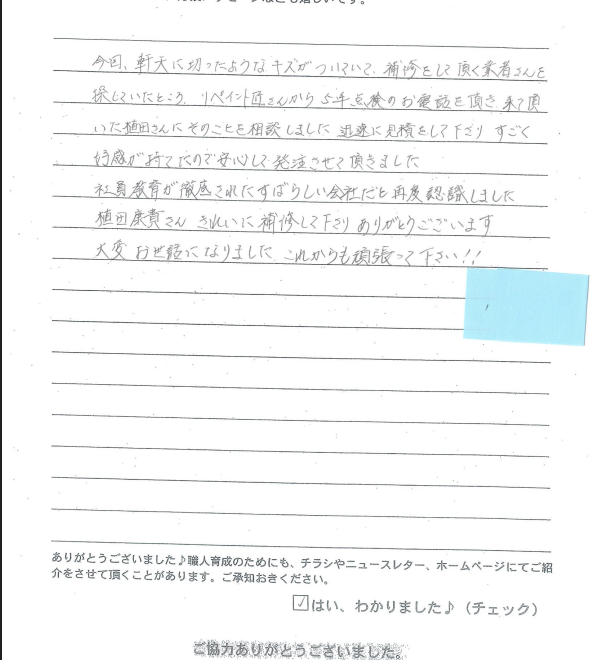 今回、軒天に切ったようなキズがついていて、補修をして頂く業者さんを
探していたところ、リペイント匠さんから5年点検のお電話を頂き、来て頂
いた植田さんにそのことを相談しました 迅速に見積をして下さり すごく
好感が持てたので安心して発注させて頂きました
社員教育が徹底されたすばらしい会社だと再度認識しました
植田康貴さん きれいに補修して下さり ありがとうございます
大変お世話になりました これからも頑張って下さい!!
ありがとうございました♪職人育成のためにも、チラシやニュースレター、ホームページにてご紹
介をさせて頂くことがあります。ご承知おきください。
☑はい、わかりました♪（チェック）
ご協力ありがとうございました。